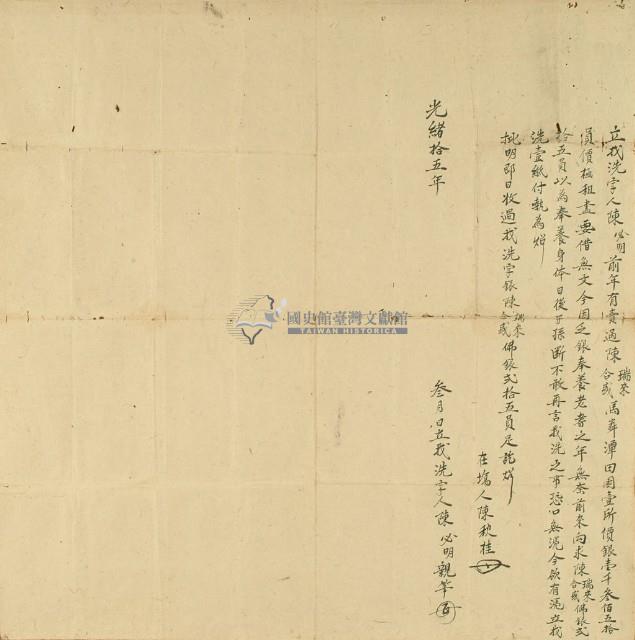 立找洗字人陳必明前年有賣過陳瑞來合成馬莽潭田園壹所價銀壹千叁佰五拾
員價極租盡要借無文今因乏銀奉養老耆之年無奈前來向求陳瑞來合成佛銀弍
拾五員以為奉養身体日後子孫斷不敢再言找洗之事恐口無憑今欲有憑立找
洗壹紙付執為炤
批明即日收過找洗字銀陳瑞來合成佛銀弍拾五員足訖炤
在塲人陳秋桂
光緒拾五年 叁月 日立找洗字人陳必明親筆
國史館臺灣文獻館
TAIWAN HISTORICA